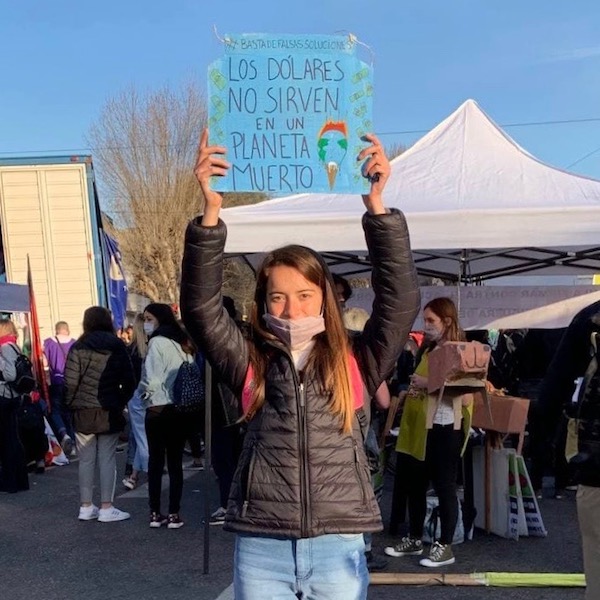 BASTA DE FALSAS SOLUCIONES
LOS DÓLARES
NO SIRVEN
EN UN
PLANETA
MUERTO